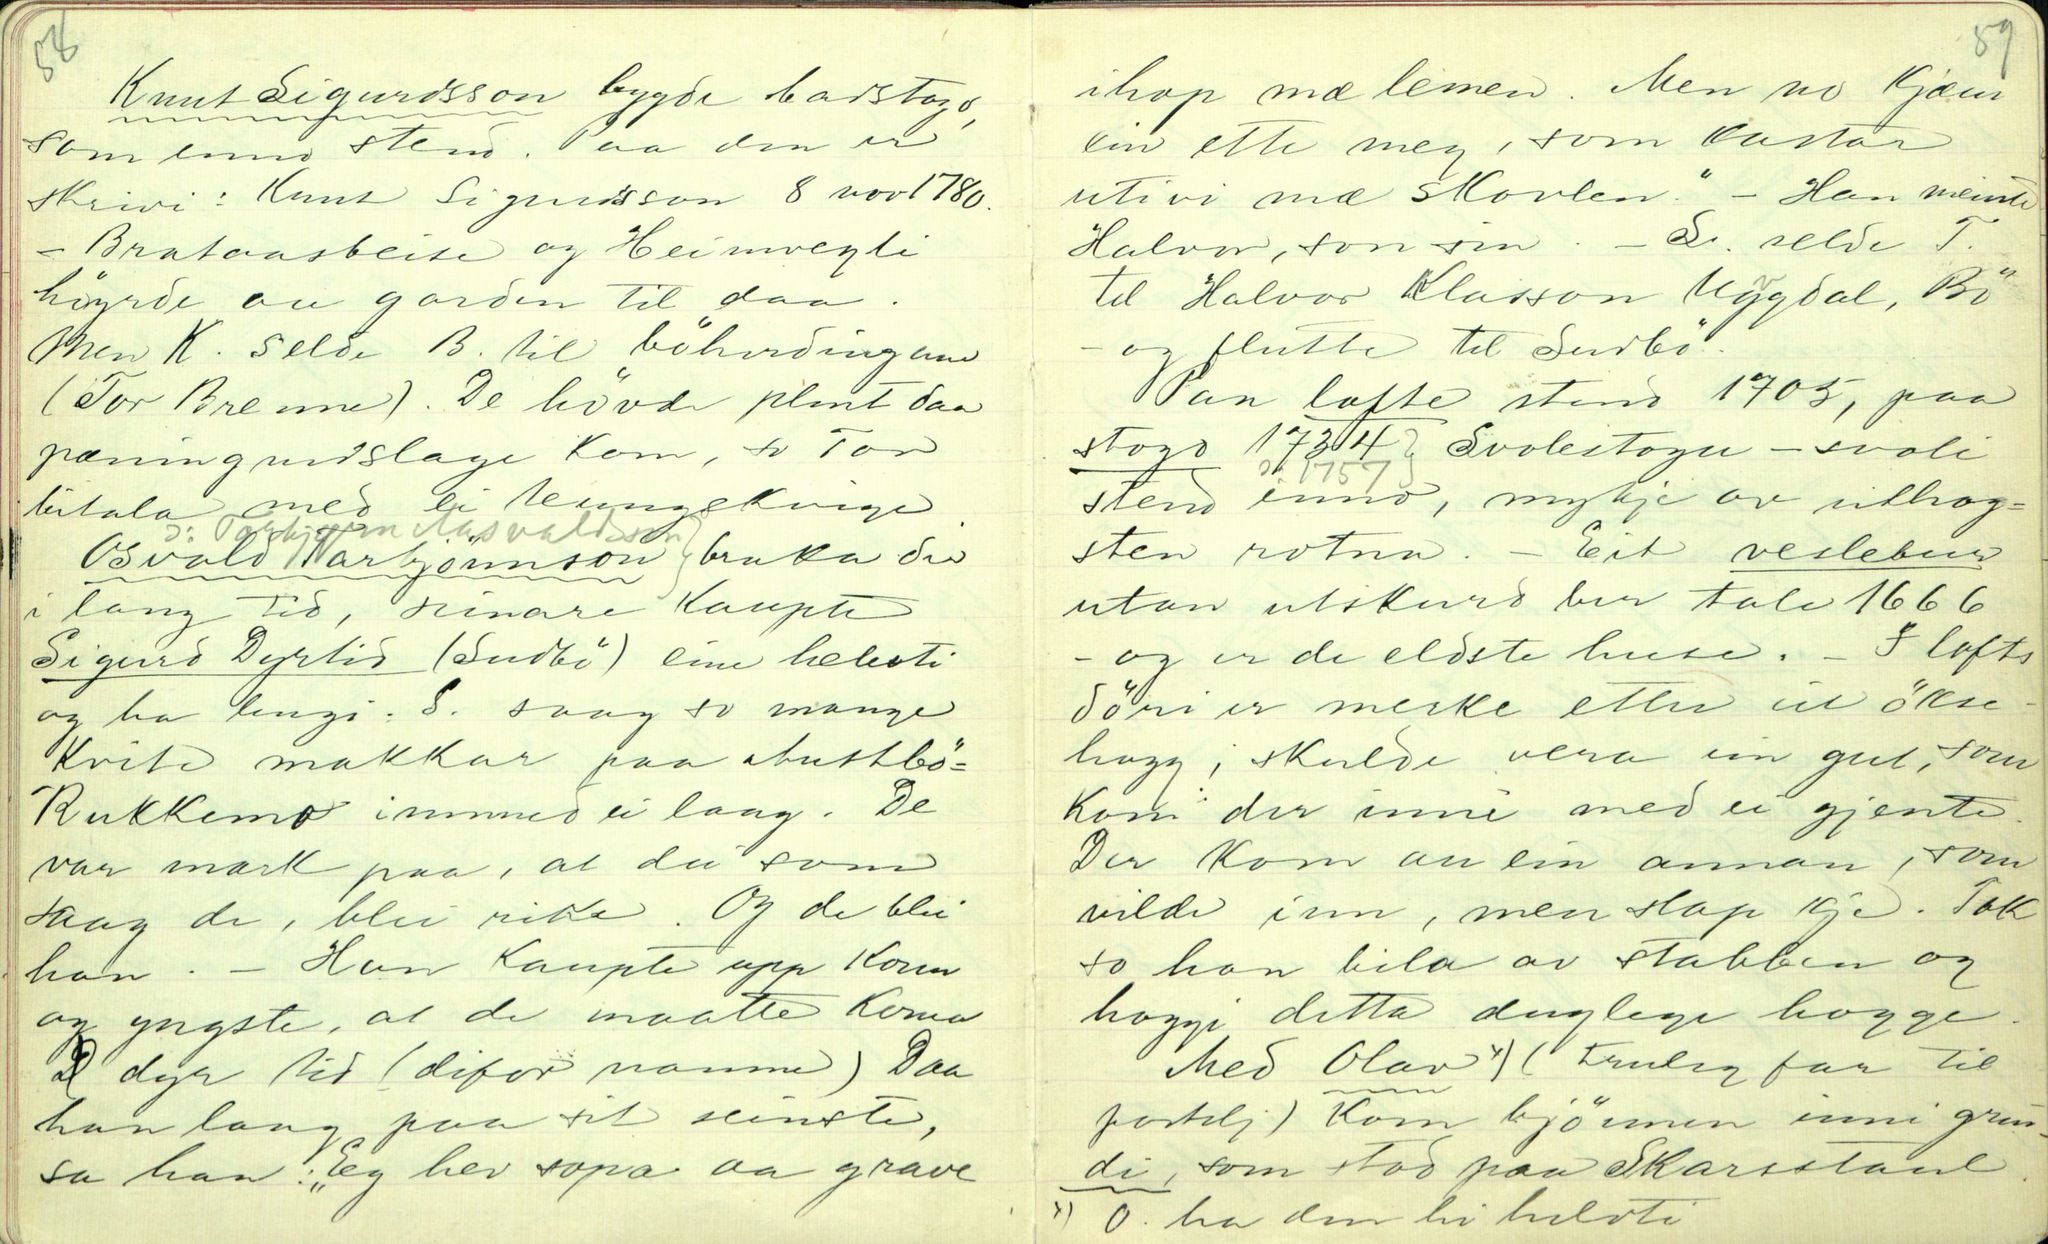 58
Knut Sigurdsson bygde badstogo,
som enno stend. Paa den er
skrivi: Knut Sigurdsson 8 nov 1780.
- Brataasbeite og Heimvegli
höyrde au garden til daa.
Men K. selde B. til böherdingane
(Tor Brenne). De hövde plent daa
pæningudslage kom, so Tor
bitala med ei ungekvige.
ɔ: Torbjørn Aasvaldsson
Osvald Tarbjönnson} bruka der
i lang tid, seinare kaupte
Sigurd Dyrtid (Sudbö) eine helvti
og ha lengi. S. saag so mange
kvite makkar paa Austbö=
Rukkemo immed ei laag. De
var mark paa, at dei som
saag de, blei rike. Og de blei
han. - Han kaupte upp korn
og yngste, at de maatte koma
D dyr tid (difor namne) Daa
han laag paa sit seinste,
sa han: „Eg hev sopa aa grave
59
ihop mæ leimen. Men no kjæm
ein ette meg, som kastar
utivi mæ skovlen." - Han meinte
Halvor, son sin. - S. selde T.
til Halvor Klasson Uvgdal, Bö
- og flutte til Sudbö.
Paa lofte stend 1705, paa
stogo 1734} Svolestogu - svoli
ɔ: 1757}
stend enno, mykje av uthog=
sten rotna. - Eit veslebur
utan utskurd ber tale 1666
- og er de eldste huse. - I lofts
döri er merke etter eit ökse-
hogg; skulde vera ein gut, som
kom der inne med ei gjente.
Der kom au ein annan, som
vilde inn, men slap kje. Tok
so han bila av stabben og
hoggi detta duglege hogge.
Med Olav x) (truleg far til
fortelj) kom bjönnen inni grin-
di, som stod paa Skarsstaul.
x) O. ha den hi helvti